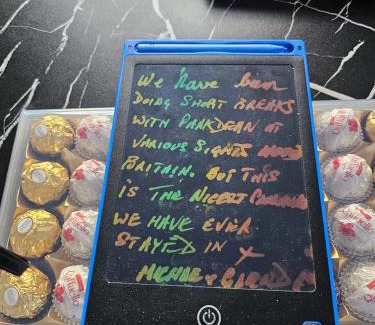 We have been
DOING SHORT BREAKS
WITH PARKDEAN AT
VARIOUS SIGHTS
BRITAIN. BUT THIS
IS THE NICEST
WE HAVE EVER
STAYED IN X